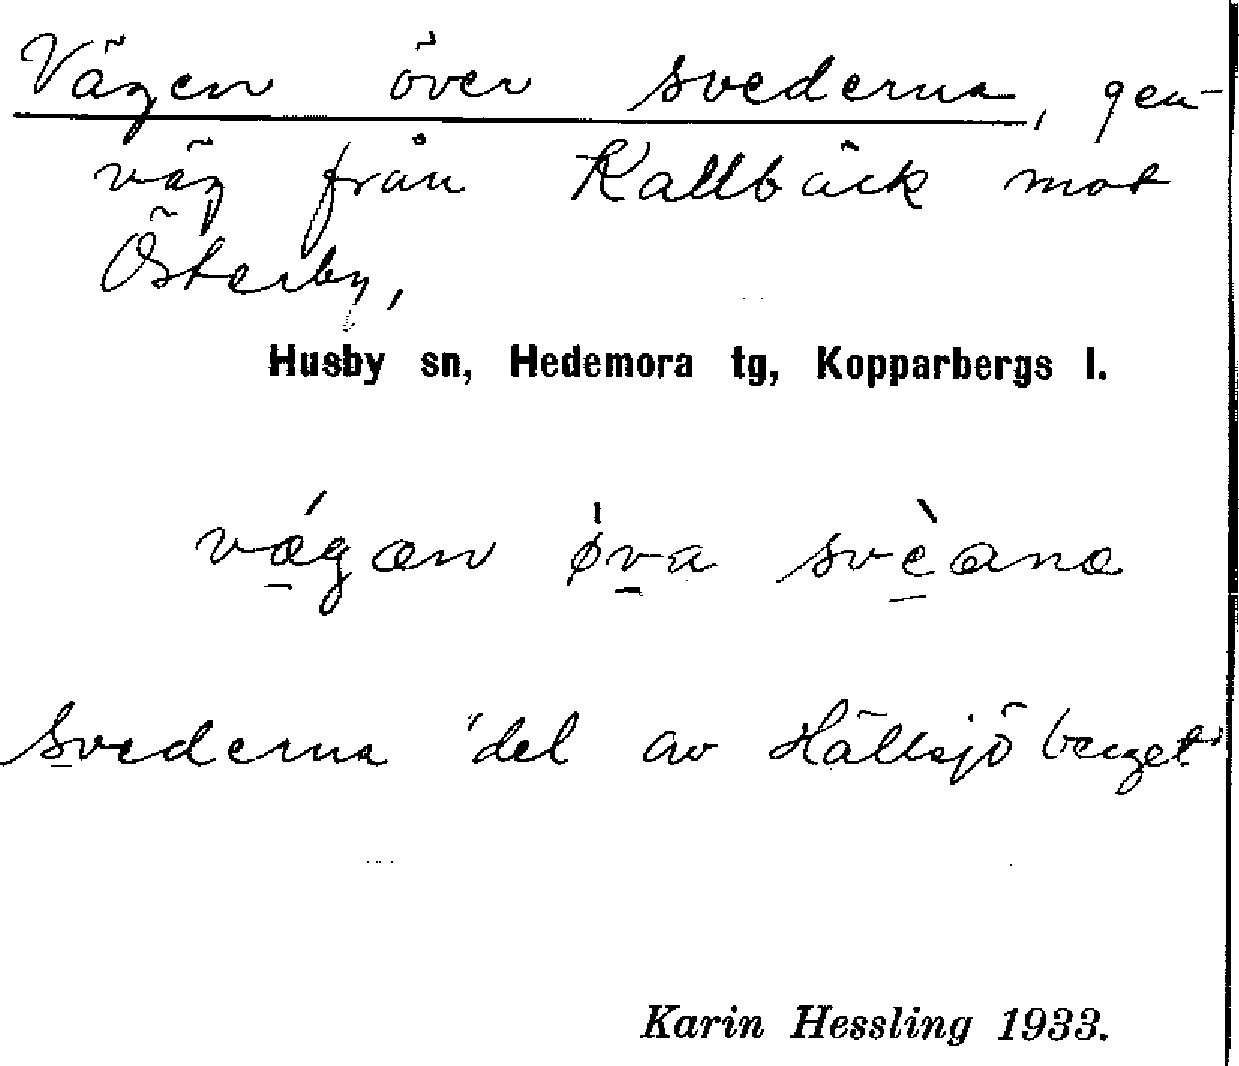 Vägen över svederna, gen-
väg från Kallbäck mot
Österby,
Husby sn, Hedemora tg, Kopparbergs l.
vǽgæn øva svèana
Svederna "del av Hällsjöberget"
Karin Hessling 1933.